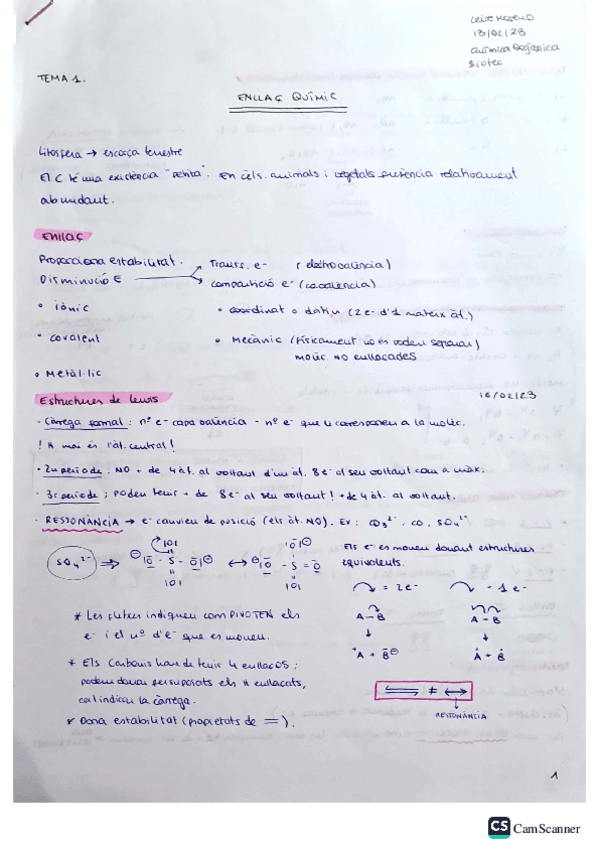 13/02/23
Química Orgànica
Biotec
TEMA 1.
ENLLAÇ QUÍMIC
Litosfera → escorça terrestre
El C té una existència "petita". En cèls. animals i vegetals presència relativament
abundant.
ENLLAÇ
Proporciona estabilitat.
Disminució E
Transf. e⁻ (electrovalència)
Compartició e⁻ (covalència)
• iònic
• coordinat o datiu (2e⁻ d'1 mateix àt.)
• covalent
• Mecànic (Físicament no es poden separar)
molèc. NO enllaçades
• Metàl·lic
Estructures de Lewis
16/02/23
· Càrrega formal: nº e⁻ capa valència - nº e⁻ que li corresponen a la molèc.
! H mai és l'àt. central!
· 2n període: NO + de 4 àt. al voltant d'un àt. 8e⁻ al seu voltant com a màx.
· 3r període: poden tenir + de 8e⁻ al seu voltant! + de 4 àt. al voltant.
· RESSONÀNCIA → e⁻ canvien de posició (els àt. NO). Ex: CO₃²⁻, CO, SO₄²⁻
SO₄²⁻ ⇒ ⊖O - S - O⊖ ↔ ⊖O - S = O
Els e⁻ es mouen donant estructures
equivalents.
= 2e⁻ = 1 e⁻
A - B A - B
⁺A + B⊖ A + B
* Les fletxes indiquen com PIVOTEN els
e⁻ i el nº d'e⁻ que es mouen.
* Els Carbonis han de tenir 4 enllaços;
podem donar per suposats els H enllaçats,
cal indicar la càrrega.
⇌ ≠ ↔
RESSONÀNCIA
* Dona estabilitat (propietats de =).
1
CS CamScanner